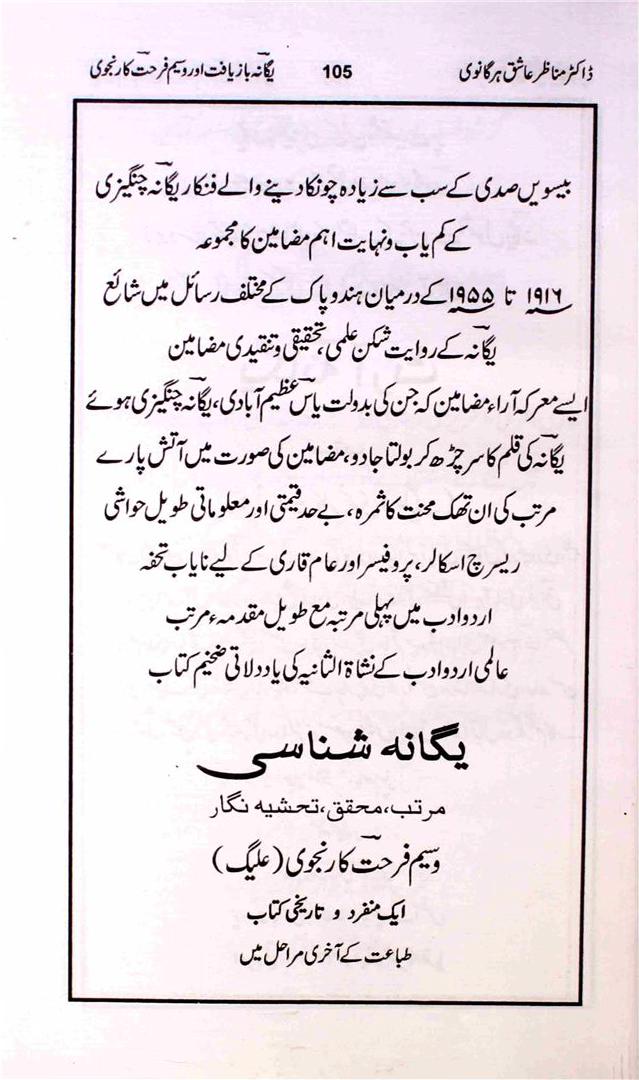 ڈاکٹر مناظر عاشق ہرگانوی 105 یگانہ بازیافت اور وسیم فرحت کارنجوی
بیسویں صدی کے سب سے زیادہ چونکا دینے والے فنکار یگانہ چنگیزی
کے کم یاب و نہایت اہم مضامین کا مجموعہ
۱۹۱۶ تا ۱۹۵۵ کے درمیان ہند و پاک کے مختلف رسائل میں شائع
یگانہ کے روایت شکن علمی، تحقیقی و تنقیدی مضامین
ایسے معرکہ آراء مضامین کہ جن کی بدولت یاس عظیم آبادی، یگانہ چنگیزی ہوئے
یگانہ کی قلم کا سر چڑھ کر بولتا جادو، مضامین کی صورت میں آتش پارے
مرتب کی ان تھک محنت کا ثمرہ، بے حد قیمتی اور معلوماتی طویل حواشی
ریسرچ اسکالر، پروفیسر اور عام قاری کے لیے نایاب تحفہ
اردو ادب میں پہلی مرتبہ مع طویل مقدمہء مرتب
عالمی اردو ادب کے نشاۃ الثانیہ کی یاد دلاتی ضخیم کتاب
یگانہ شناسی
مرتب، محقق، تحشیہ نگار
وسیم فرحت کارنجوی (علیگ)
ایک منفرد و تاریخی کتاب
طباعت کے آخری مراحل میں